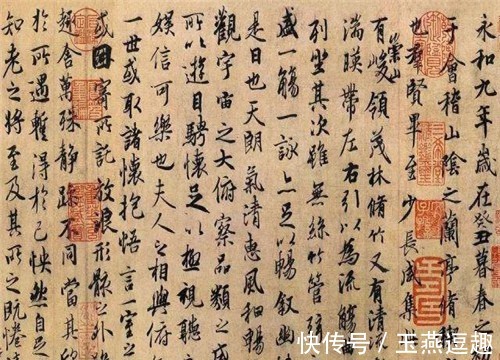 永和九年歲在癸丑暮春
于會稽山陰之蘭亭脩
也群賢畢至少長咸集
有崇山峻領茂林脩竹又有清
湍暎帶左右引以為流
列坐其次雖無絲竹管
盛一觴一詠亦足以暢叙幽
是日也天朗氣清惠風和暢
觀宇宙之大俯察品類之
所以遊目騁懷足以極視聽
娛信可樂也夫人之相與俯
一世或取諸懷抱悟言一室之
或因寄所託放浪形骸之外
趣舍萬殊靜躁不同當其
於所遇暫得於己怏然自
知老之將至及其所之既惓
快传号/玉燕逗趣